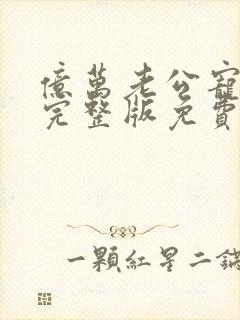 億萬老公寵
完整版免費
一顆紅星二鍋